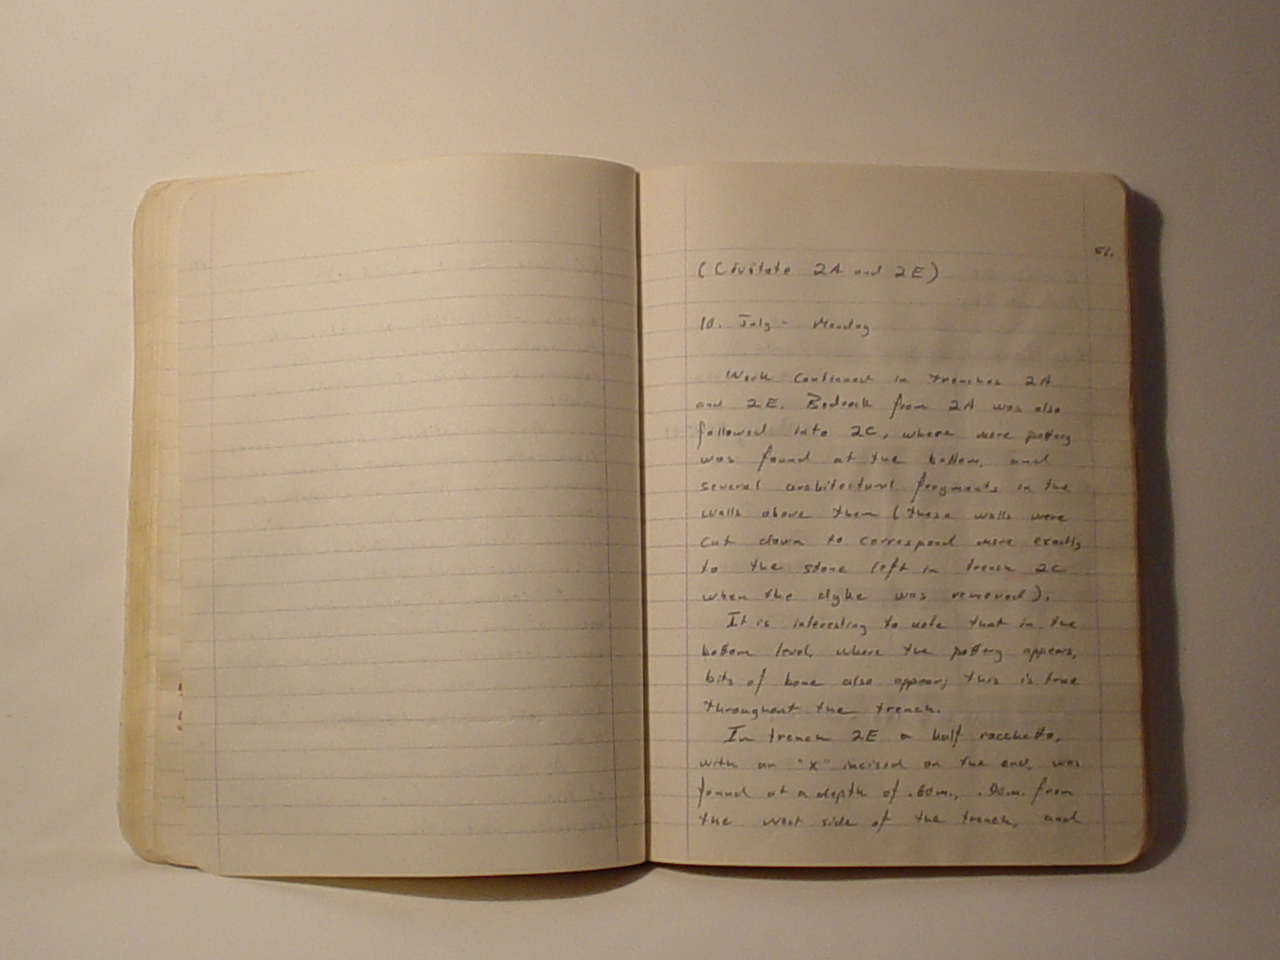 51.
(Civitate 2A and 2E)
10. July - Monday
Work continued in trenches 2A
and 2E. Bedrock from 2A was also
followed into 2C, where more pottery
was found at the bottom, and
several architectural fragments in the
walls above them (these walls were
cut down to correspond more exactly
to the stone left in trench 2C
when the dyke was removed).
It is interesting to note that in the
bottom level, where the pottery appears,
bits of bone also appear; this is true
throughout the trench.
In trench 2E a half rocchetto,
with an "x" incised on the end, was
found at a depth of .60m., .90m. from
the west side of the trench, and